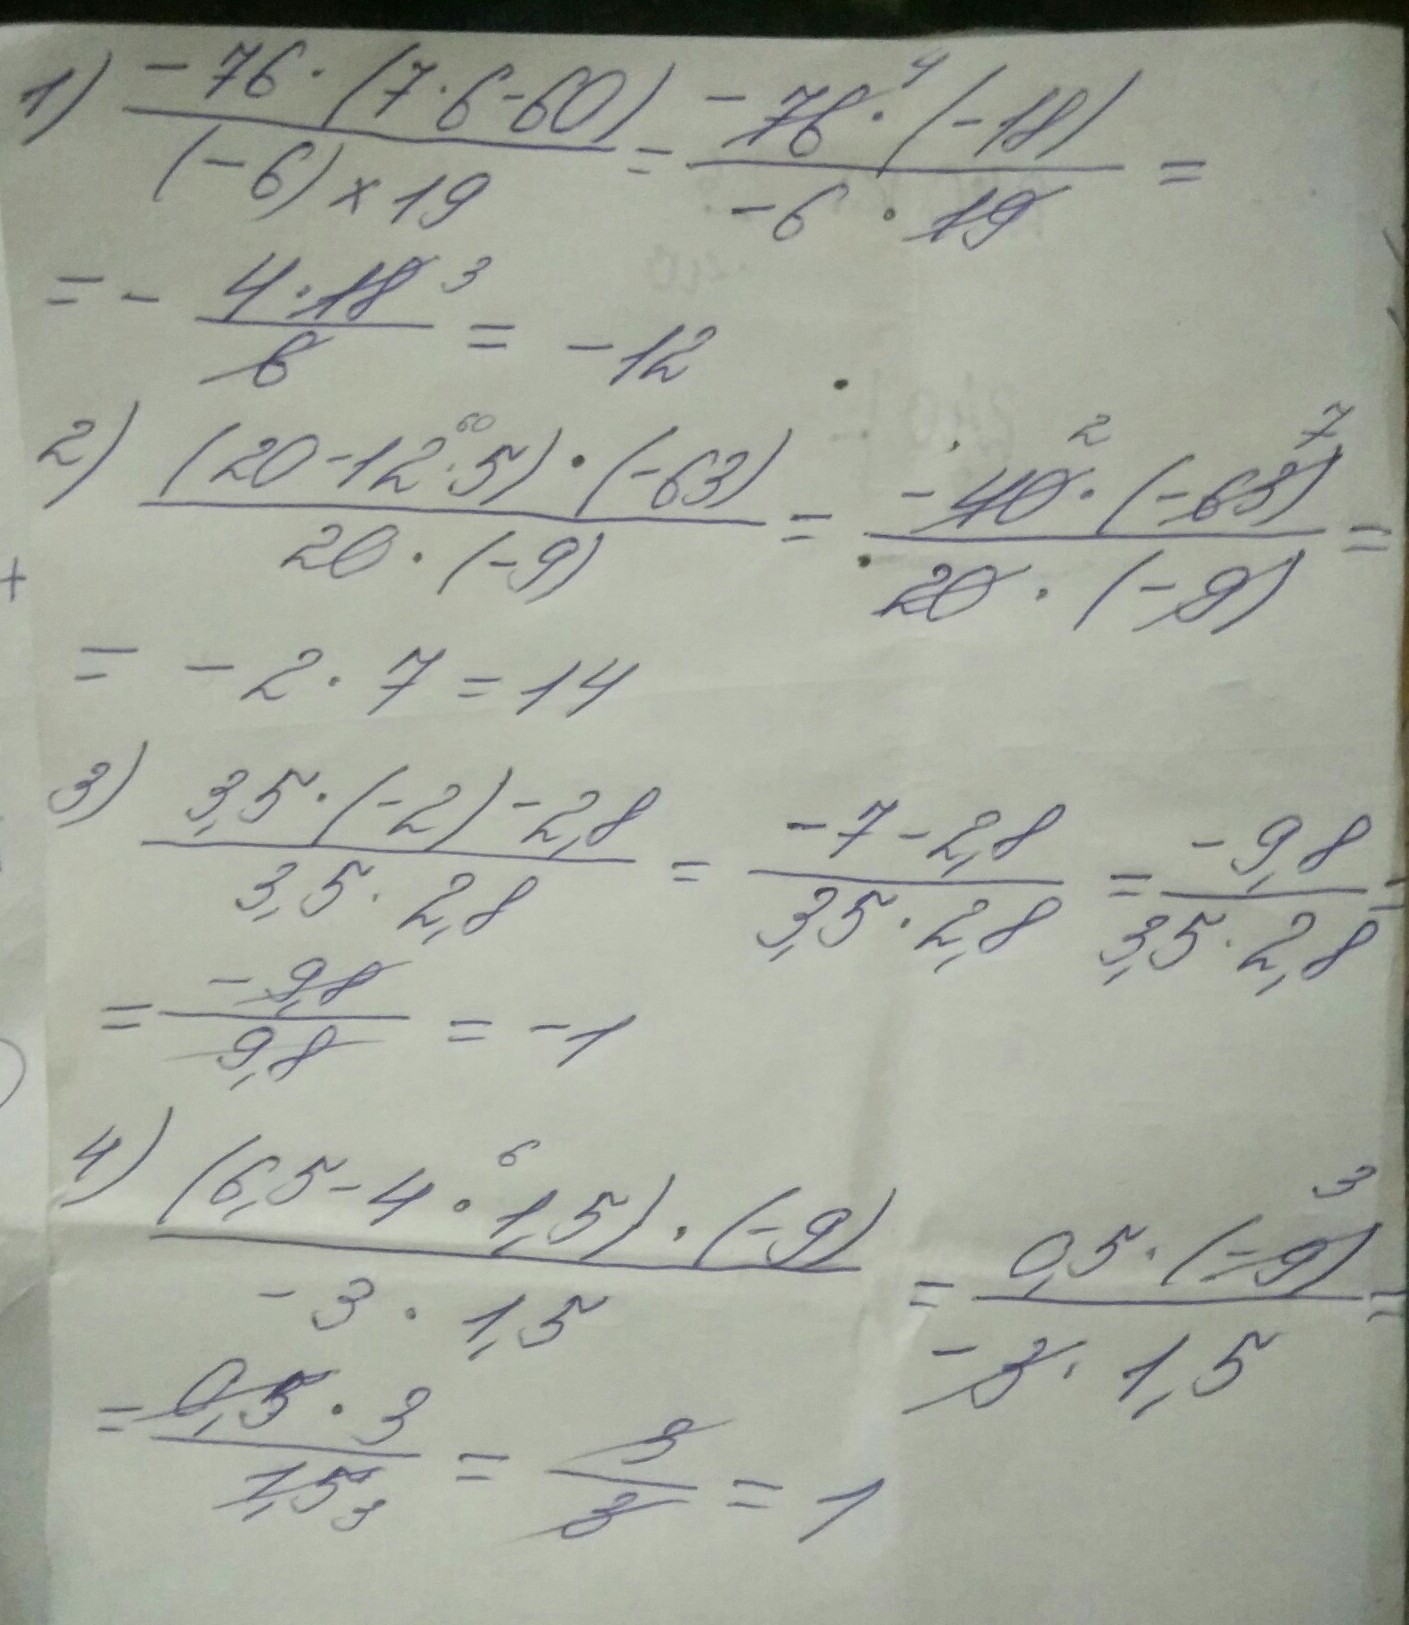 1) (-76 · (7·6-60)) / ((-6) × 19) = (-76 · 4 (-18)) / (-6 · 19) =
= - (4 · 18 3) / 6 = -12
2) ((20 - 12·5 60) · (-63)) / (20 · (-9)) = (-40 2 · (-63) 7) / (20 · (-9)) =
= -2 · 7 = 14
3) (3,5 · (-2) - 2,8) / (3,5 · 2,8) = (-7 - 2,8) / (3,5 · 2,8) = (-9,8) / (3,5 · 2,8) =
= (-9,8) / (9,8) = -1
4) ((6,5 - 4 · 1,5 6) · (-9)) / (-3 · 1,5) = (0,5 · (-9) 3) / (-3 · 1,5) =
= (0,5 · 3) / (1,5 3) = 3 / 3 = 1